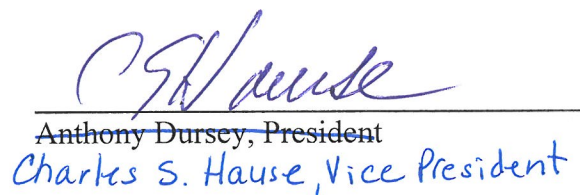 CSHause
Anthony Dursey, President
Charles S. Hause, Vice President